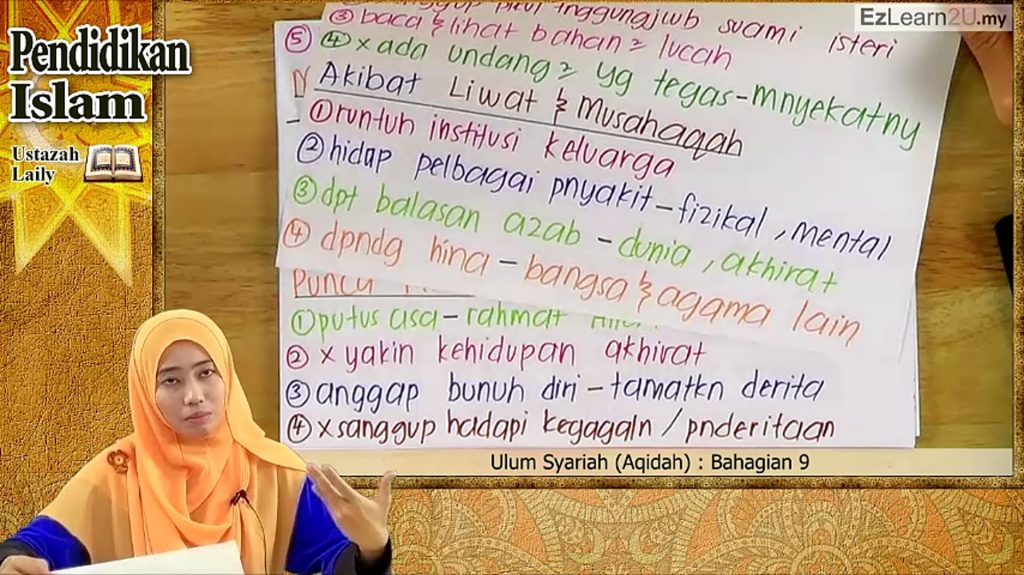 Pendidikan
Islam
Ustazah
Laily
EzLearn2U.my
suami isteri
③ baca & lihat bahan² lucah
⑤ ④ x ada undang² yg tegas - mnyekatny
Akibat Liwat & Musahaqah
① runtuh institusi keluarga
② hidap pelbagai pnyakit - fizikal, mental
③ dpt balasan azab - dunia, akhirat
④ dpndg hina - bangsa & agama lain
① putus asa - rahmat
② x yakin kehidupan akhirat
③ anggap bunuh diri - tamatkn derita
④ x sanggup hadapi kegagaln / pnderitaan
Ulum Syariah (Aqidah) : Bahagian 9